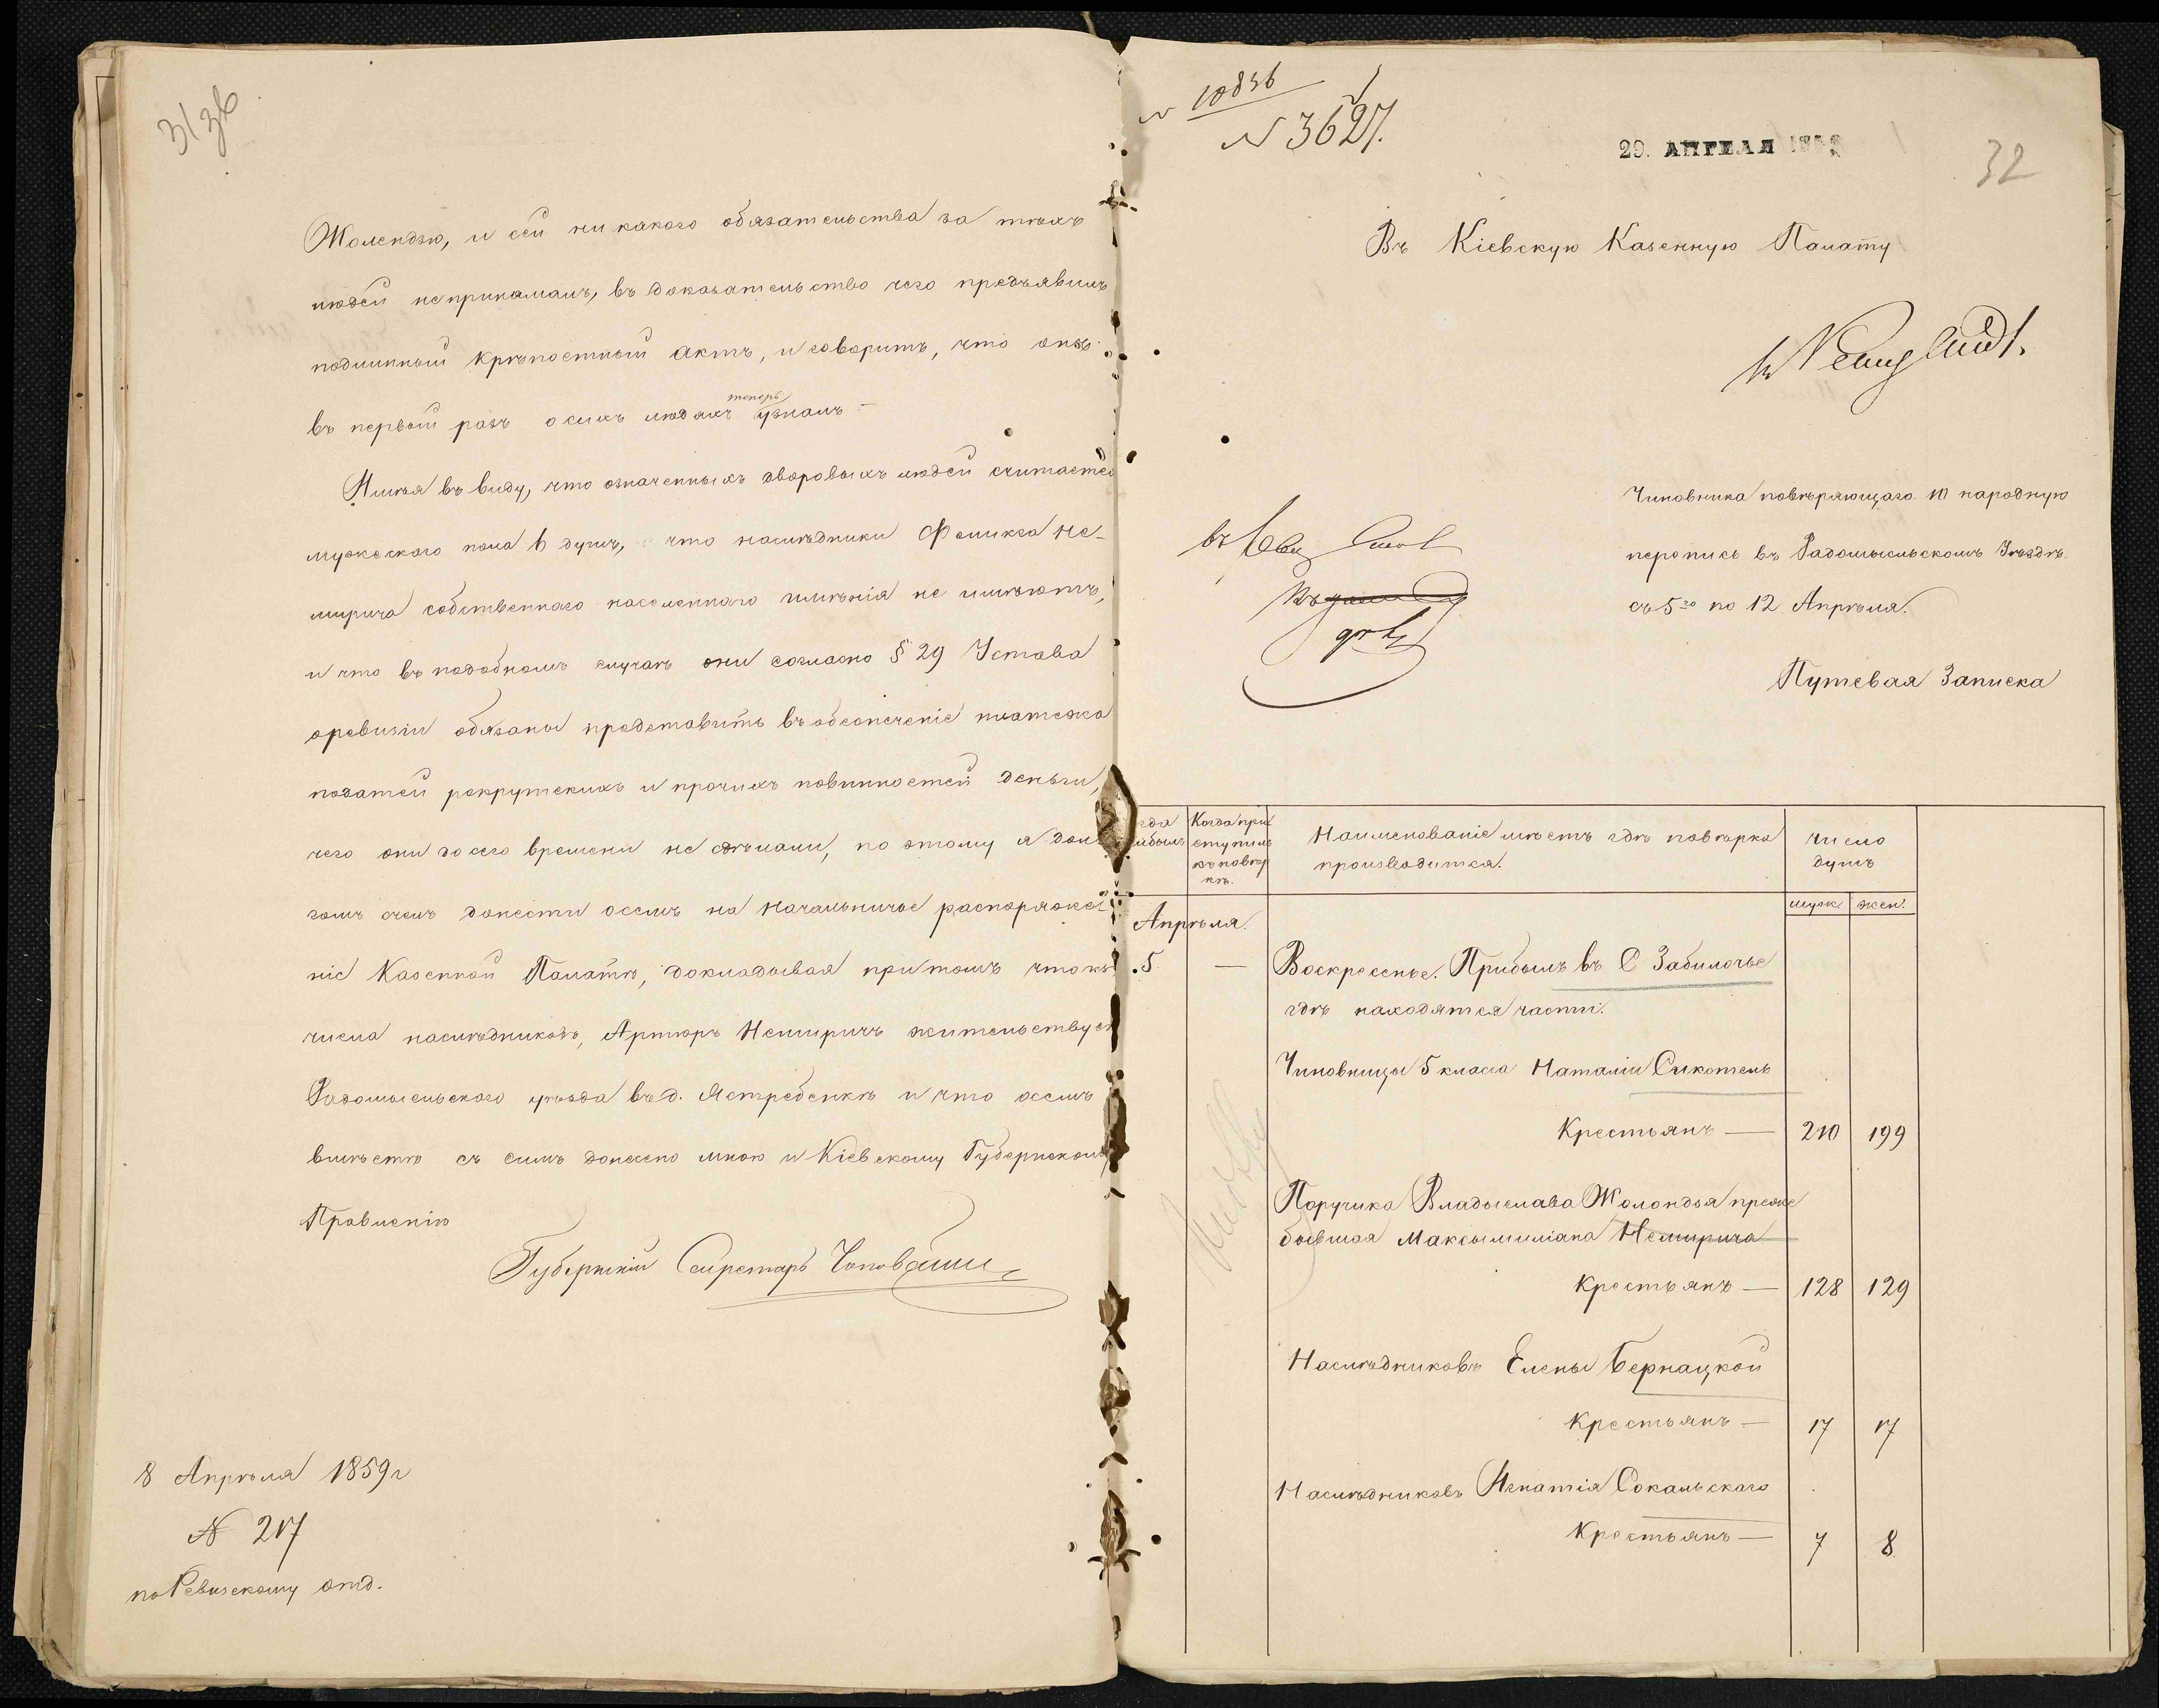 31 зв
Жолендзю, и сей никакого обязательства за тѣхъ
людей непринималъ, въ доказательство чего предъявилъ
подлинный крѣпостный актъ, и говоритъ, что онъ
теперь
въ первый разъ о сихъ людяхъ узналъ
Имѣя въ виду, что означенныхъ дворовыхъ людей считается
мужескаго пола 6 душъ, что наслѣдники Феликса Не-
мирича собственнаго населеннаго имѣнія не имѣютъ,
и что въ подобномъ случаѣ они согласно § 29 Устава
оревизіи обязаны представить въ обезпеченіе платежа
податей рекрутскихъ и прочихъ повинностей деньги,
чего они до сего времени не сдѣлали, по этому я дол
гомъ счелъ донести осемъ на Начальничое распоряже-
ніе Казенной Палатѣ, докладывая притомъ что изъ
числа наслѣдниковъ, Артюръ Немиричъ жительствуетъ
Радомысльскаго уѣзда въ д. Ястребенкѣ и что осемъ
вмѣстѣ съ симъ донесено мною и Кіевскому Губернскому
Правленію
Губернскій Секретарь
8 Апрѣля 1859 г
№ 217
по Ревизскому отд.
№ 10836
№ 3627.
29. АПРЕЛЯ 1859
32
Въ Кіевскую Казенную Палату
Чиновника повѣряющаго 10 народную
перепись въ Радомысльскомъ Уѣздѣ
съ 5го по 12 Апрѣля.
Путевая Записка
Когда при
ступилъ
къ повѣр
кѣ.
Наименованіе мѣстъ гдѣ повѣрка
производится.
Число
душъ
муж. жен.
Апрѣля.
5. — Воскресенье. Прибылъ въ С Забилочье
гдѣ находятся части.
Чиновницы 5 класса Наталіи Сикотель
Крестьянъ — 210 199
Поручика Владыслава Жолондзя преже
бывшая Максымиліана Немирича
Крестьянъ — 128 129
Наслѣдниковъ Елены Бернацкой
Крестьянъ — 17 17
Наслѣдниковъ Игнатія Сокальскаго
Крестьянъ — 7 8